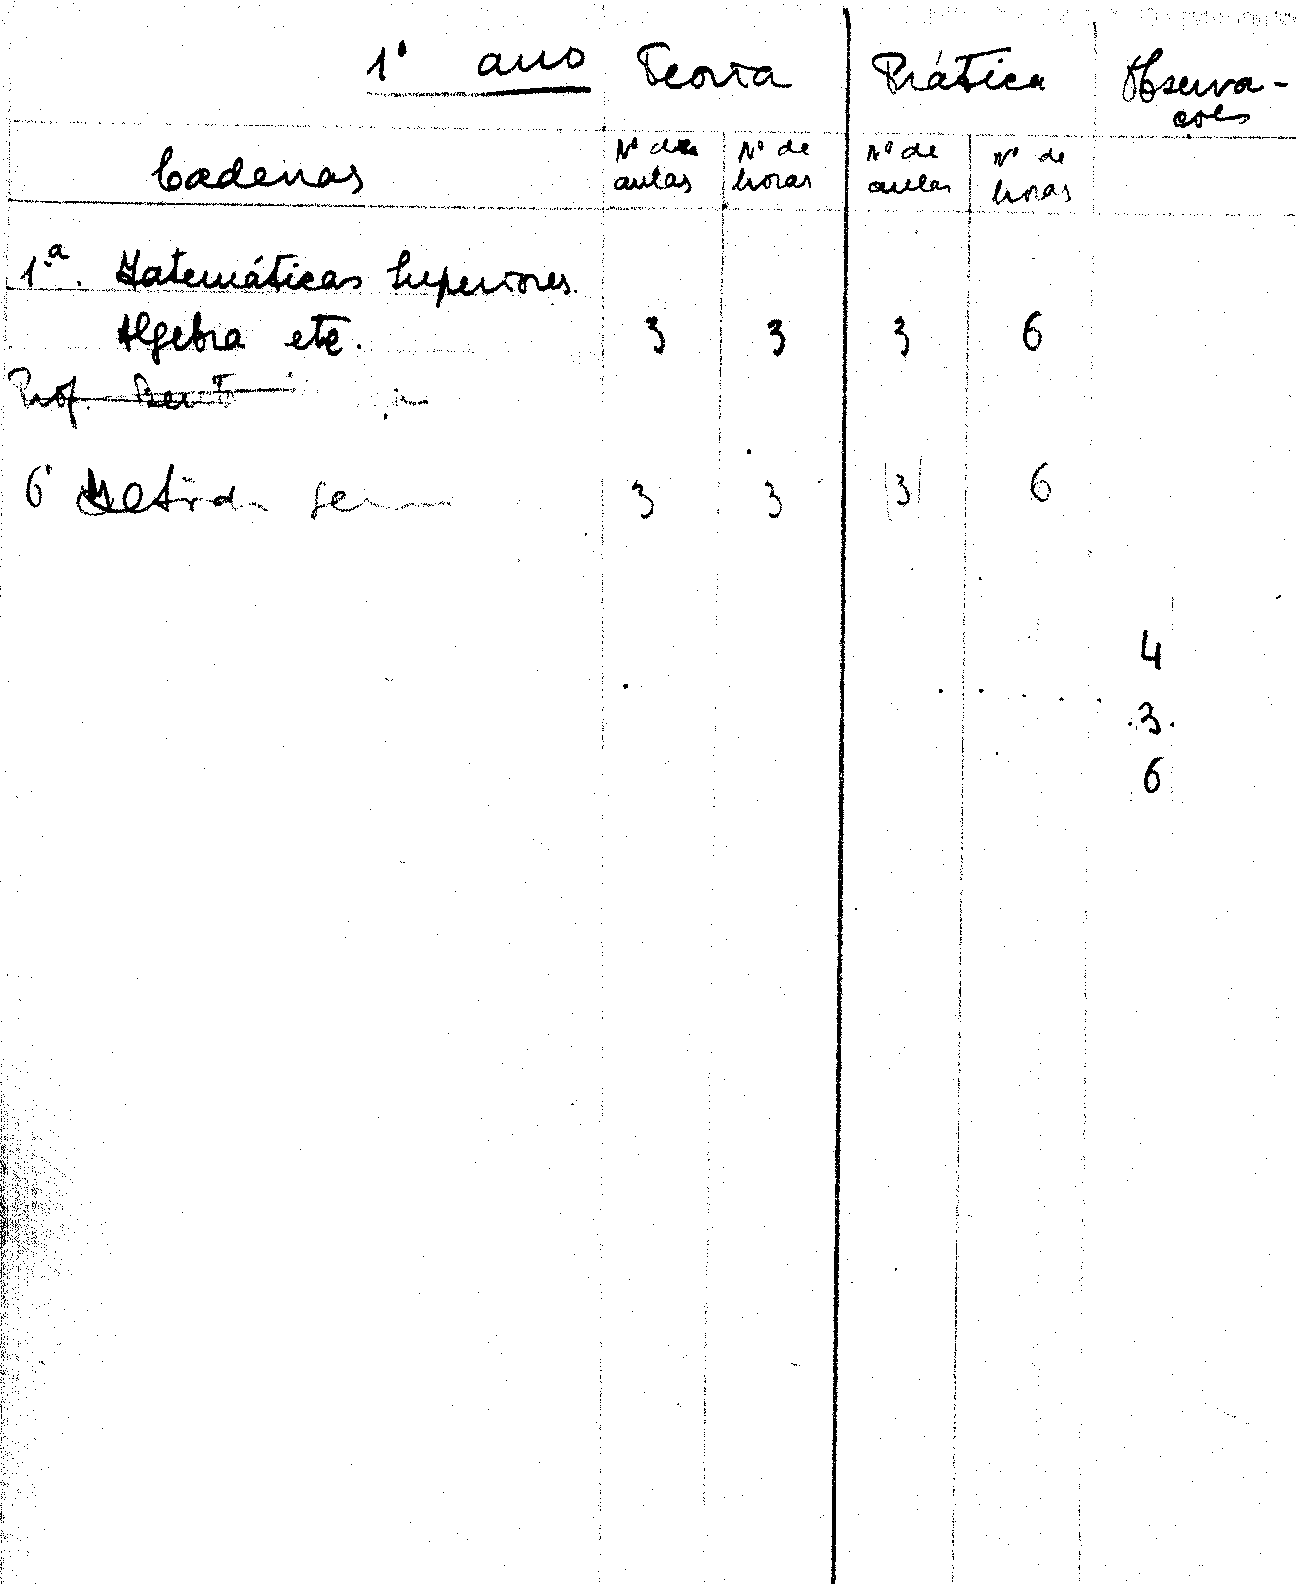 1º ano Teoria Prática Observa-
ções
Cadeiras Nº de aulas Nº de horas Nº de aulas Nº de horas
1.ª Matemáticas Superiores.
Algebra etc. 3 3 3 6
Prof.
6ª 3 3 3 6
4
3
6